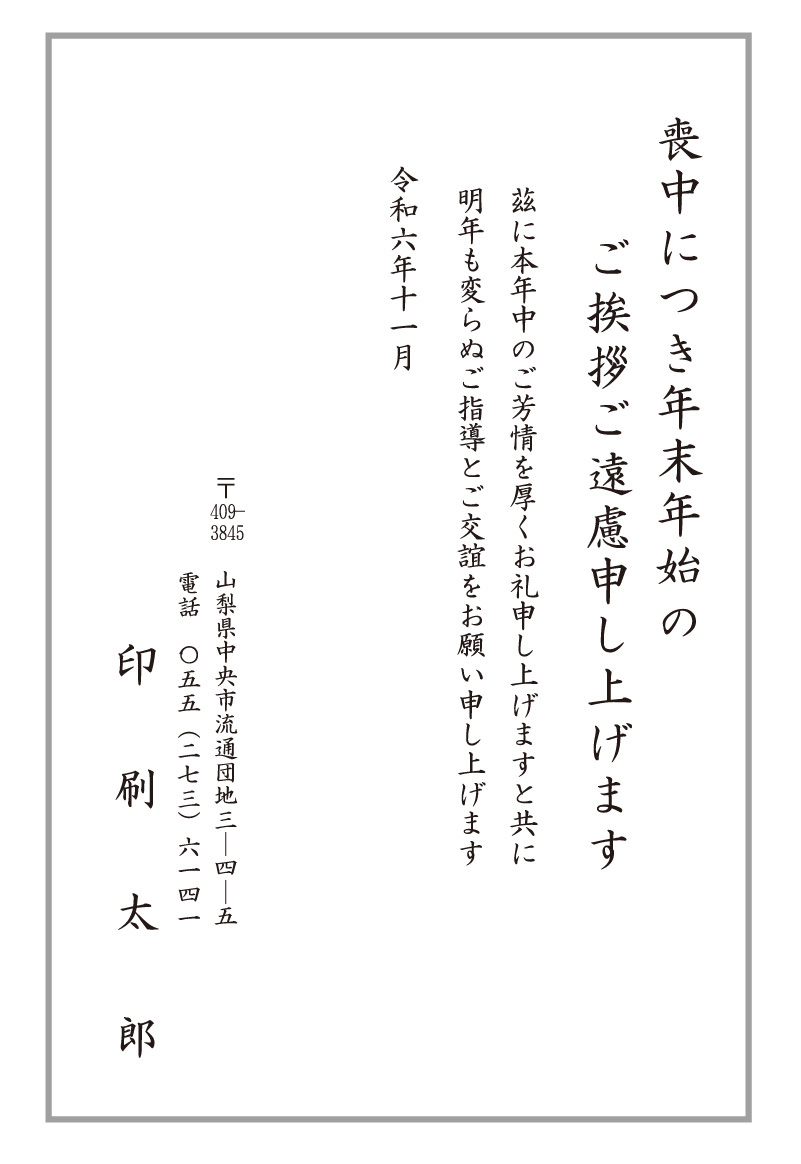 喪中につき年末年始の
ご挨拶ご遠慮申し上げます
茲に本年中のご芳情を厚くお礼申し上げますと共に
明年も変らぬご指導とご交誼をお願い申し上げます
令和六年十一月
〒409-3845
山梨県中央市流通団地三―四―五
電話 〇五五（二七三）六一四一
印刷太郎